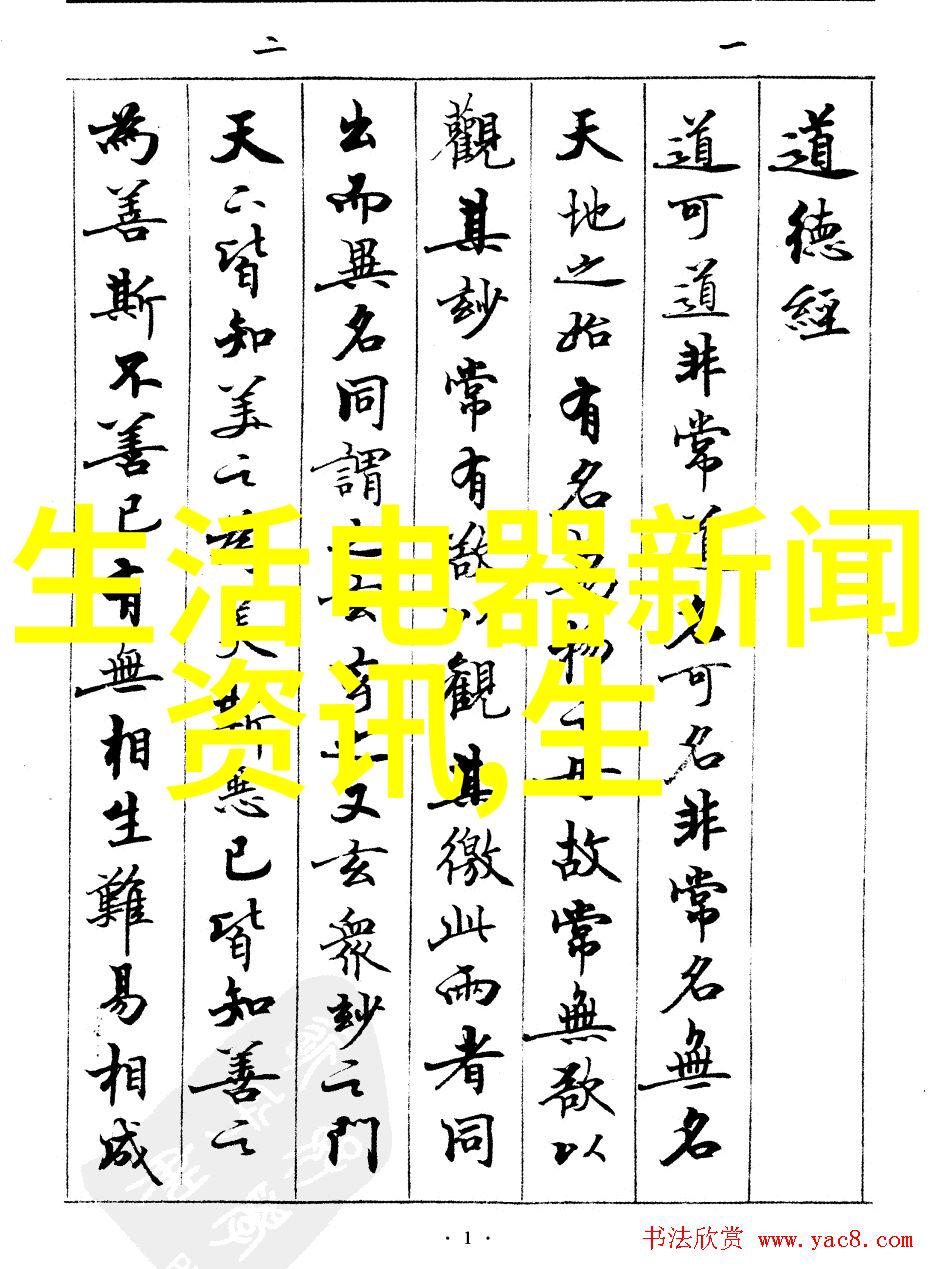 一
二
道德經
道可道非常道名可名非常名無名
天地之始有名萬物之母故常無欲以
觀其玅常有欲以觀其徼此兩者同
出而異名同謂之玄玄之又玄衆玅之門
天下皆知美之為美斯惡已皆知善之
為善斯不善已有無相生難易相成
生活电器新闻
资讯,生
· 1 ·
书法欣赏 www.yac8.com